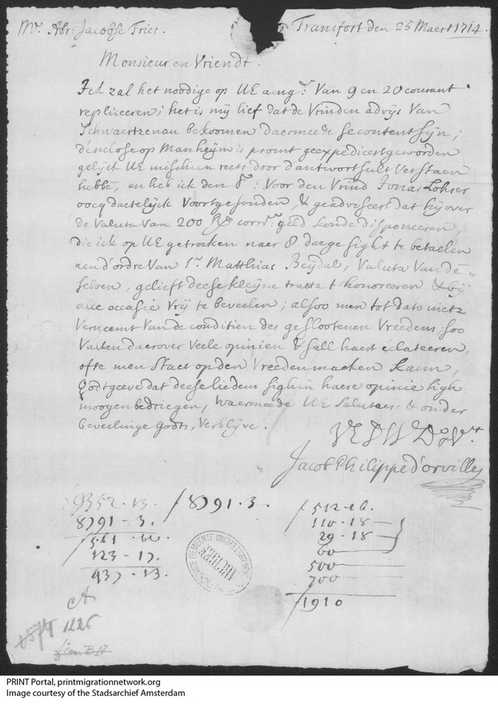 Mr. Abr: Jacobse Fries.
Francfort den 25 Maert 1714.
Monsieur en Vriendt.
Zel zal het noodige op UE aeng: Van 9 en 20 courant
repliceeren; het is mij lief dat de Vrinden advijs Van
Schwartzenau bekoomen daermede Se content sijn;
d'inclose op Manheijm is promt geexpedieert geworden
gelijck UE misschien reets door d'antwort sult Verstaen
hebbe, en heb ick den 8 Voor den Vrind Jonas Lohrer
oocq daetelijck Voortgesonden, & geadviseert dat hij over
de Valuta Van 200 cour: geld konde disponeeren
die ick op UE getrocken naer 8 daege sight te betaelen
aen d'ordre Van Sr. Matthias Beijdal, Valuta Van de=
selven, gelieft deese kleijne tratta t' honoreeren & bij
alle occasie Vrij te beveelen; alsoo men tot dato nietz
Verneemt Van de conditien des geslootenen Vreedens, soo
Vallen daerover Veele opinien & sall haest eclateeren,
ofte men Staet op den Vreeden maecken kann,
Godt geeve dat deese lieden sigh in haere opinie sigh
moogen bedriegen, waermeede UE Saluteere & onder
beveelinge Godts, Verblijve.
Jacob Philippe d'orville
9352.13.
8791.3.
561.10
123.17.
437.13.
8791.3.
512.16.
110.18
29.18
60
500
700
1910
A
1226
PRINT Portal, printmigrationnetwork.org
Image courtesy of the Stadsarchief Amsterdam